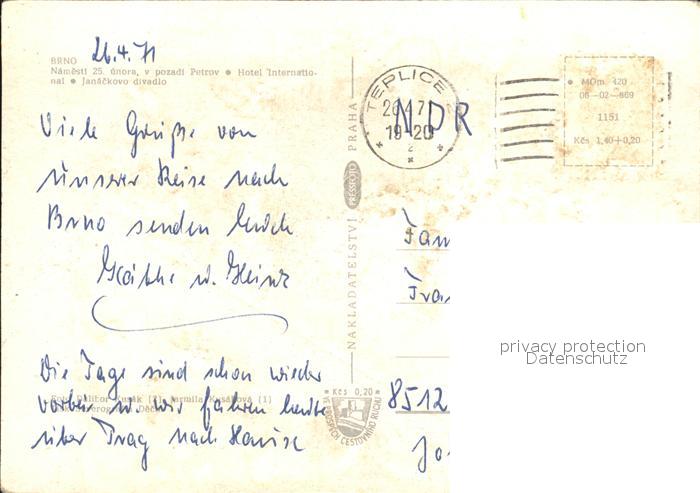 26.4.71
BRNO
Náměstí 25. února, v pozadí Petrov ● Hotel Internatio-
nal ● Janáčkovo divadlo
Viele Grüße von
unserer Reise nach
Brno senden Euch
Käthe u. Heinz
Die Tage sind schon wieder
vorbei u. wir fahren heute
über Prag nach Hause
Foto Dalibor Kusák [2], Jarmila Kusáková (1)
NAKLADATELSTVÍ PRESSFOTO PRAHA
Kčs 0,20
VE PROSPĚCH CESTOVNÍHO RUCHU
TEPLICE
19-20
2
NDR
MOm. 420
06-02-869
1151
Kčs 1,40+0,20
Fam
Fra
8512
Jo
privacy protection
Datenschutz